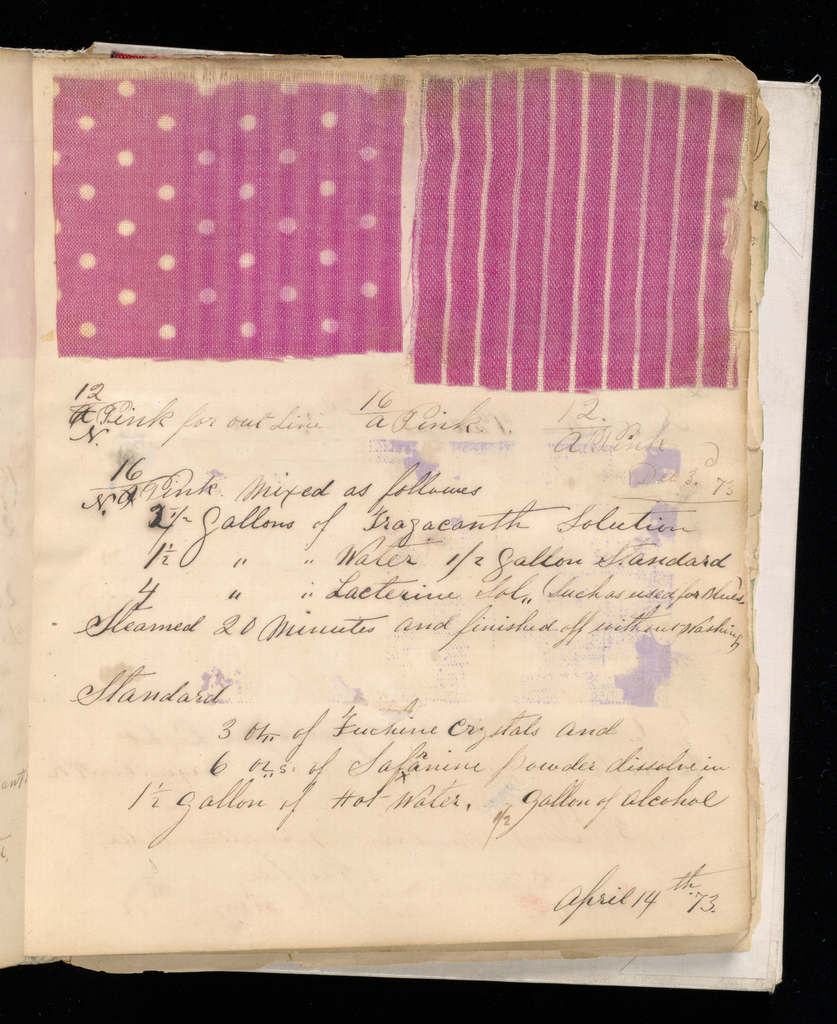 12 A Pink for out Line 16 A Pink 12. A Pink
N. Dec 3d 73
16
N. A Pink Mixed as followes
2 1/2 Gallons of Tragacanth Solution
1 1/2 " " Water 1/2 Gallon Standard
4 " " Lacterine Sol,, (Such as used for Blues)
Steamed 20 Minutes and finished off without Washing
Standard
3 oz,, of Fuchine Crystals and
6 oz,,s. of Safranine powder dissolve in
1 1/2 gallon of Hot Water. 1/2 gallon of alcohol
April 14th 73.